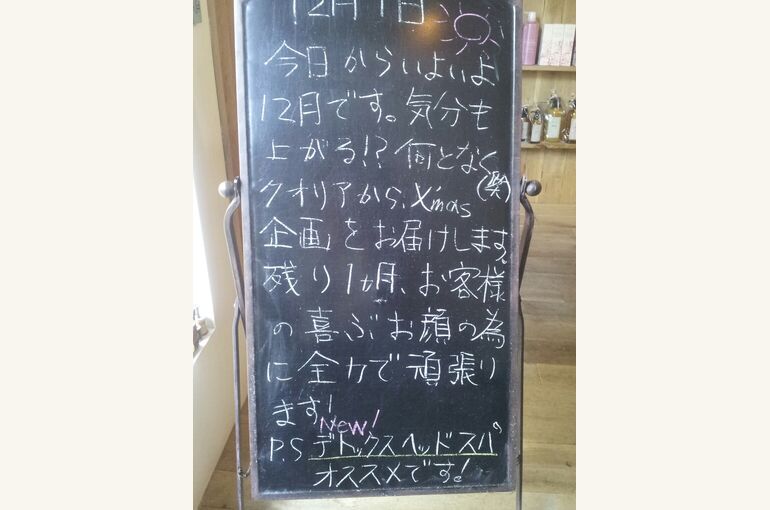 12月1日
今日からいよいよ
12月です。気分も
上がる!?何となく(笑)
クオリアから、X'mas
企画をお届けします。
残り1ヵ月、お客様
の喜ぶお顔の為
に全力で頑張り
ます!
New!
P.S デトックスヘッドスパ
オススメです!